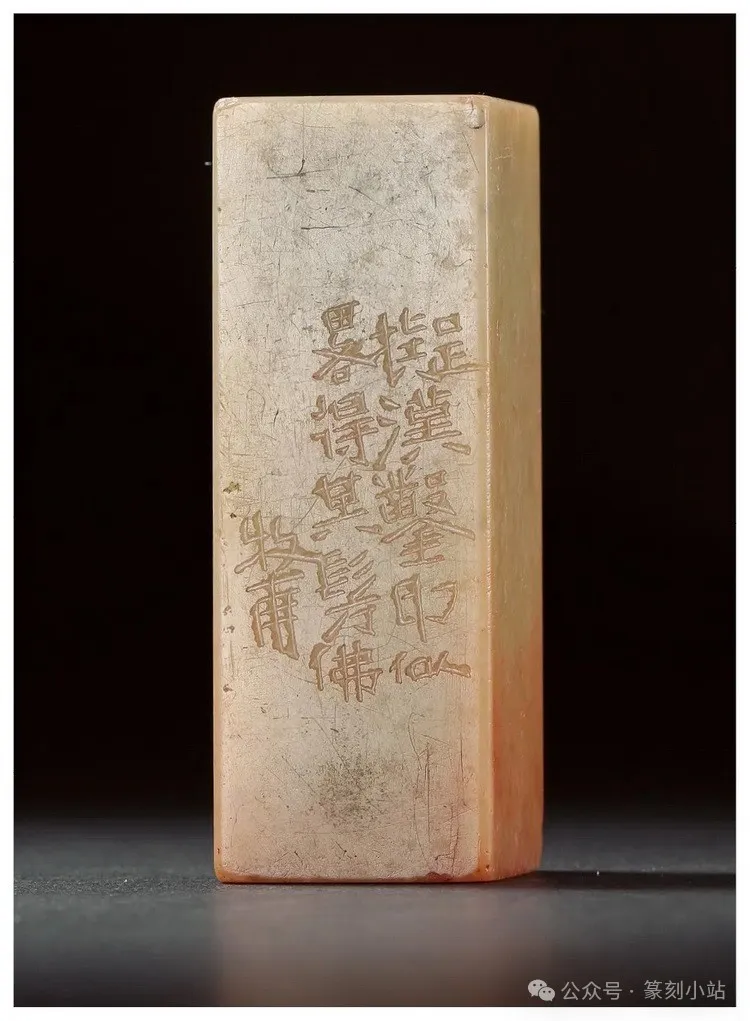 擬漢鑿印似
畧得其髣佛
牧甫
公众号 · 篆刻小站